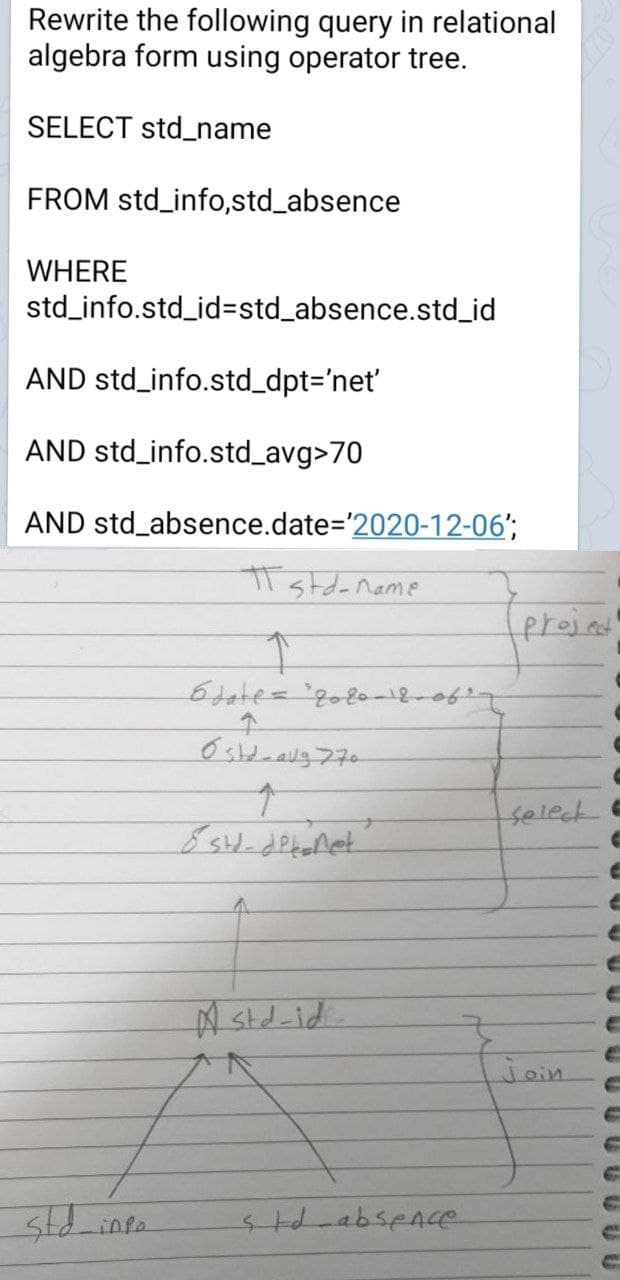 Rewrite the following query in relational
algebra form using operator tree.
SELECT std_name
FROM std_info,std_absence
WHERE
std_info.std_id=std_absence.std_id
AND std_info.std_dpt='net'
AND std_info.std_avg>70
AND std_absence.date='2020-12-06';
π std-name
project
σ date= '2020-12-06'
σ std-avg >70
select
σ std-dpt='net'
⋈ std-id
join
std_info std_absence